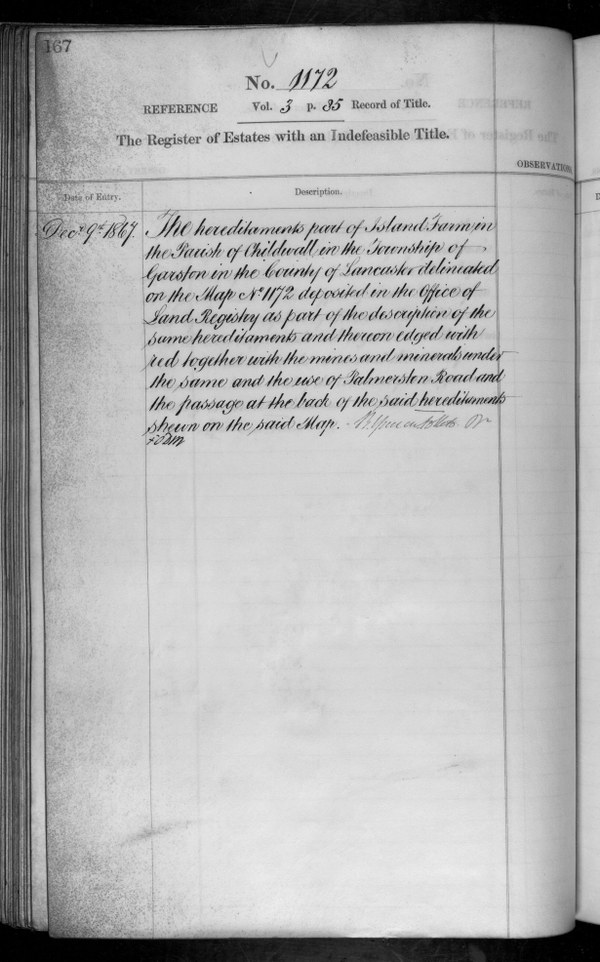 167
No. 1172
REFERENCE Vol. 3 p. 85 Record of Title.
The Register of Estates with an Indefeasible Title.
OBSERVATIONS
Date of Entry. Description.
Decr. 9th 1867. The hereditaments part of Island Farm in
the Parish of Childwall in the Township of
Garston in the County of Lancaster delineated
on the Map No. 1172 deposited in the Office of
Land Registry as part of the description of the
same hereditaments and thereon edged with
red together with the mines and minerals under
the same and the use of Palmerston Road and
the passage at the back of the said hereditaments
shewn on the said Map.